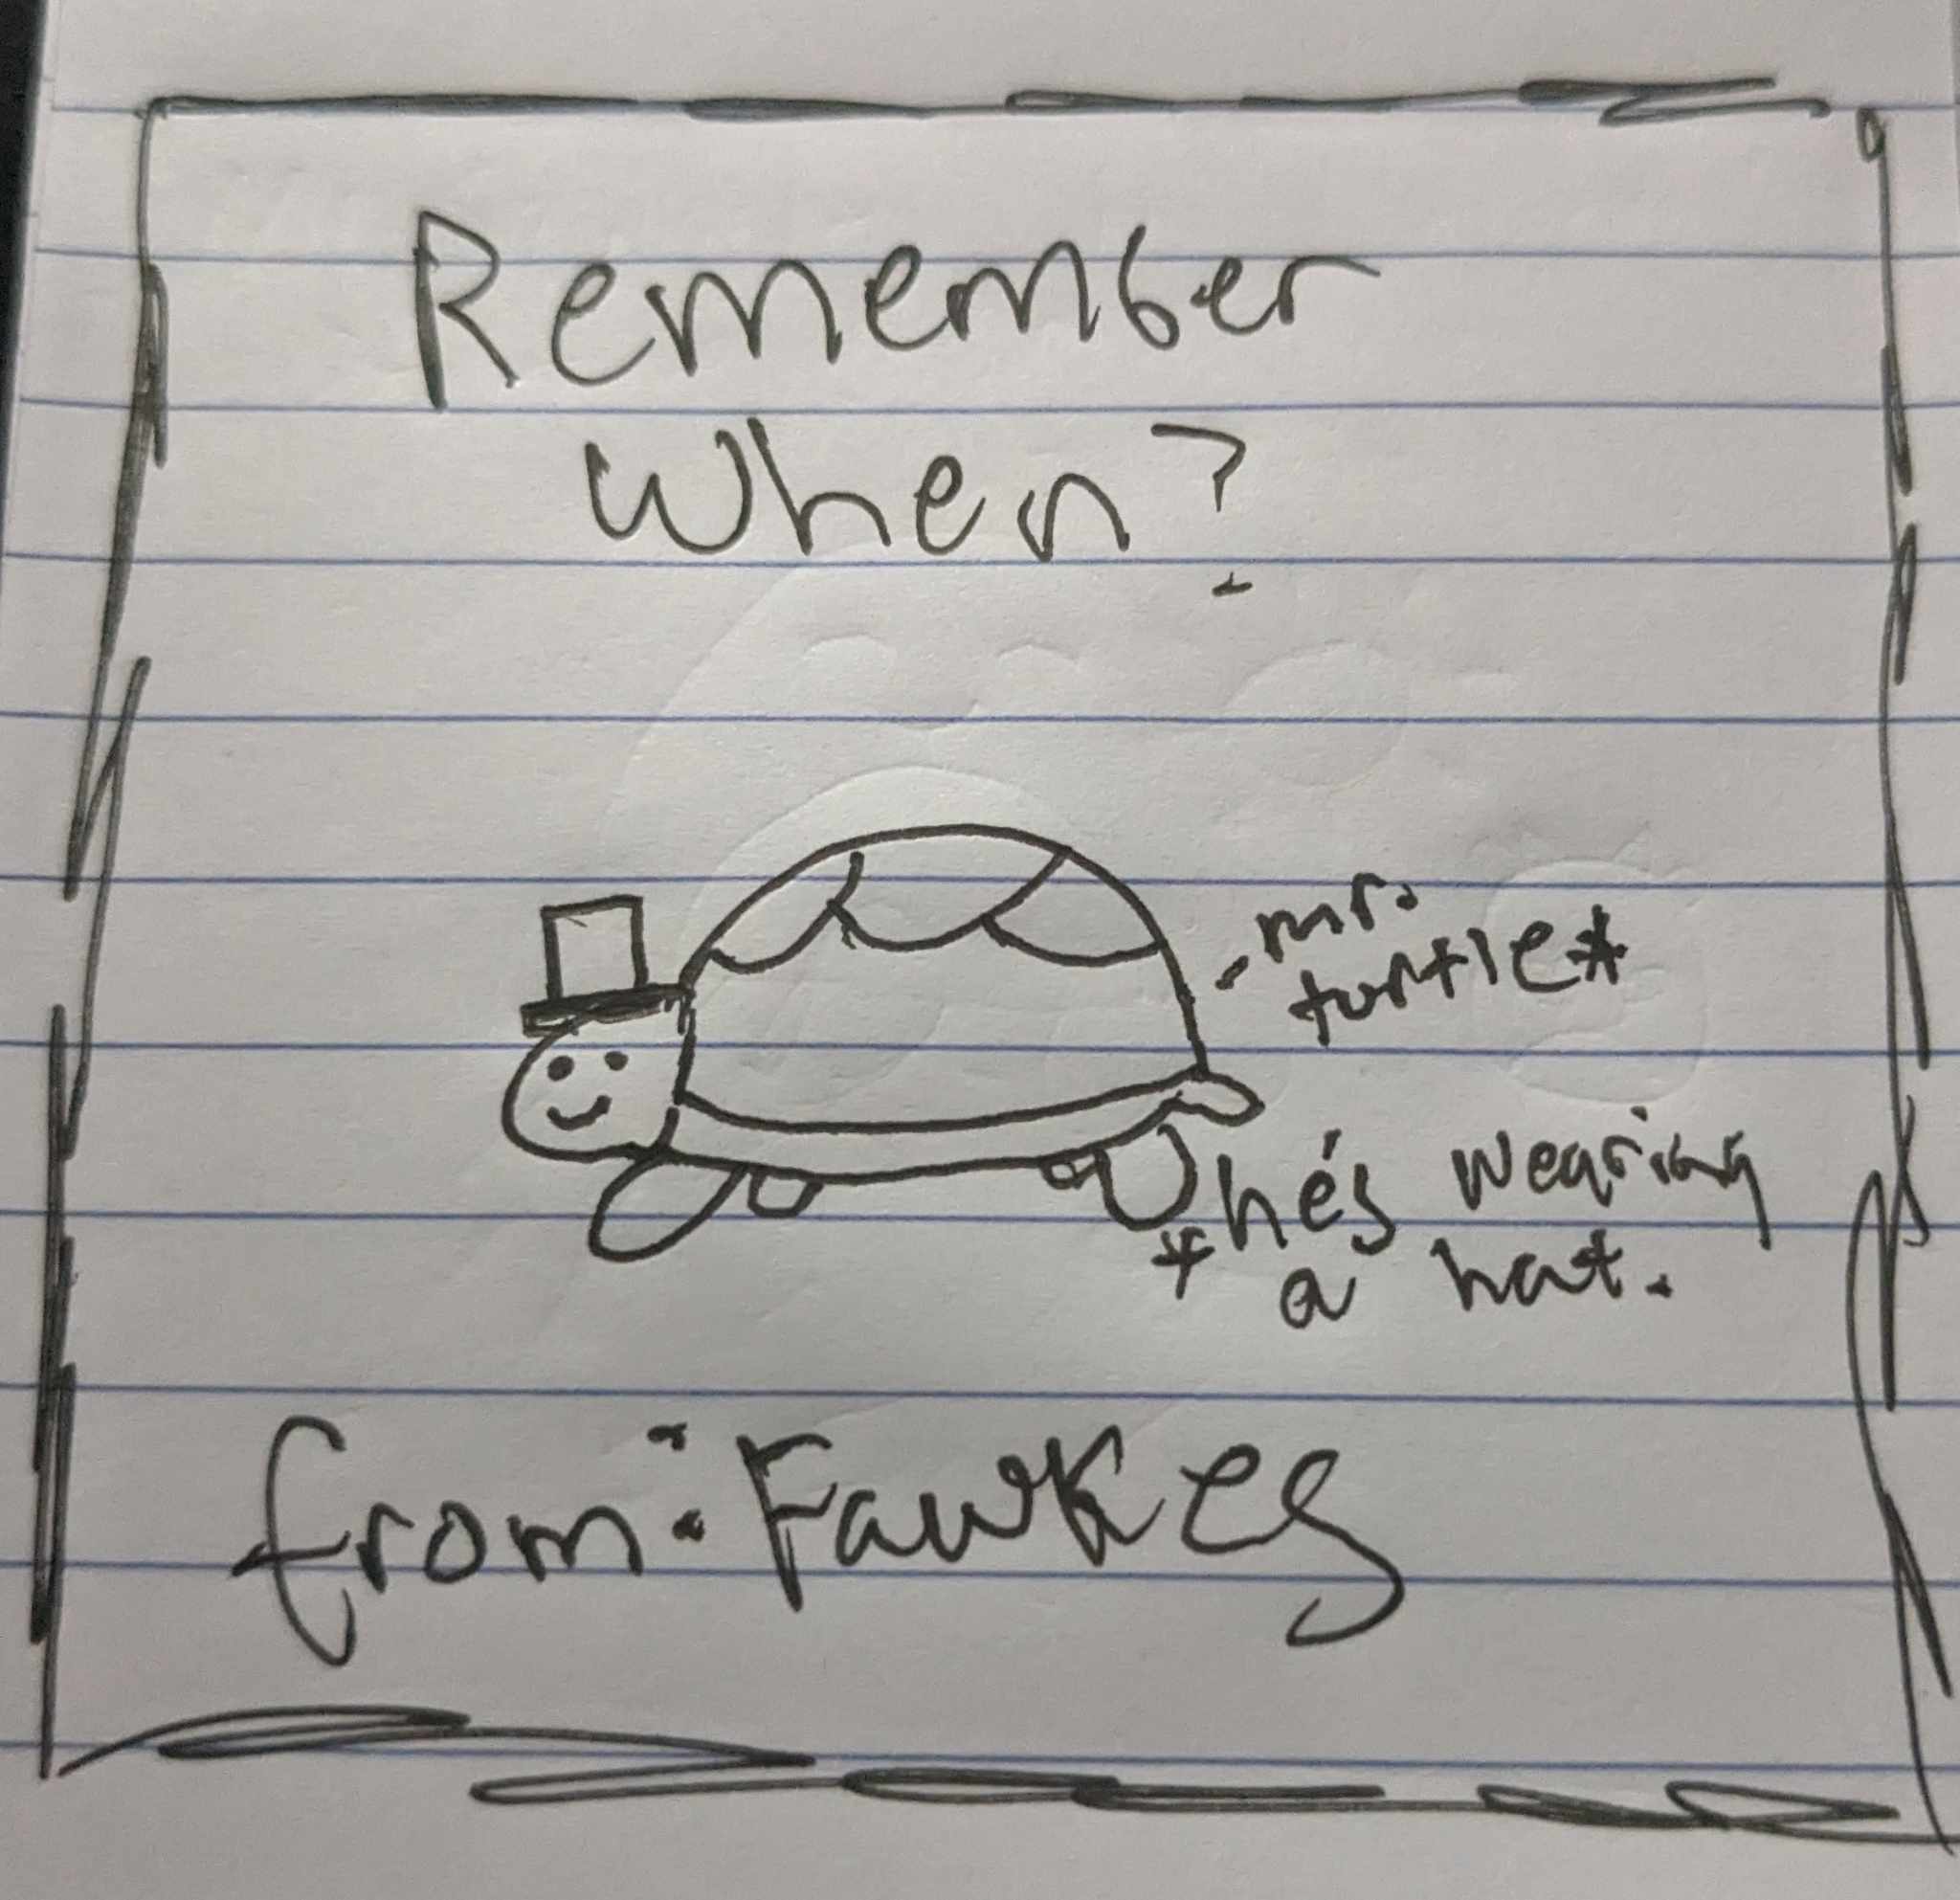 Remember
When?
- mr.
turtle*
*he's wearing
a hat.
from: Fawkes